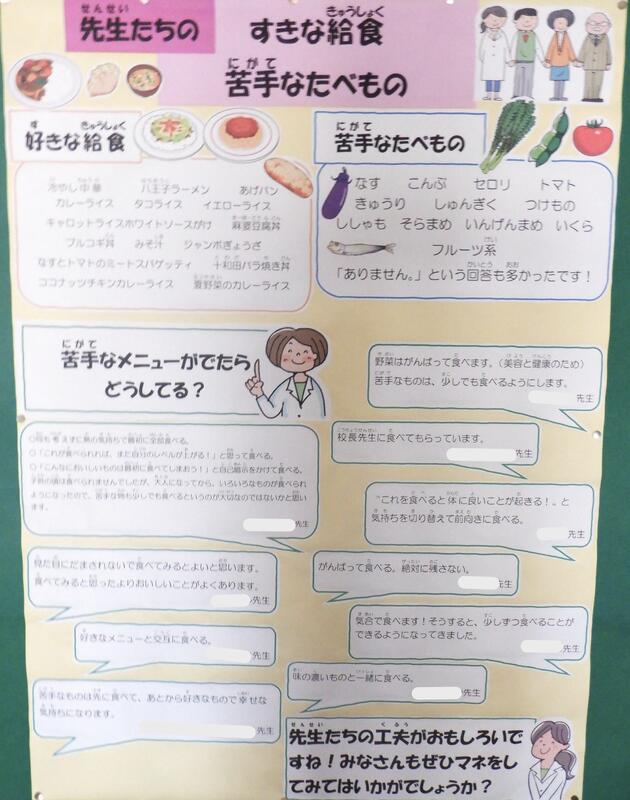 先生たちの すきな給食
苦手なたべもの
好きな給食
冷やし中華 八王子ラーメン あげパン
カレーライス タコライス イエローライス
キャロットライスホワイトソースがけ 麻婆豆腐丼
プルコギ丼 みそ汁 ジャンボぎょうざ
なすとトマトのミートスパゲッティ 十和田バラ焼き丼
ココナッツチキンカレーライス 夏野菜のカレーライス
苦手なたべもの
なす こんぶ セロリ トマト
きゅうり しゅんぎく つけもの
ししゃも そらまめ いんげんまめ いくら
フルーツ系
「ありません。」という回答も多かったです!
苦手なメニューがでたら
どうしてる?
野菜はがんばって食べます。(美容と健康のため)
苦手なものは、少しでも食べるようにします。
先生
校長先生に食べてもらっています。
先生
○何も考えずに無の気持ちで最初に全部食べる。
○「これが食べられれば、また自分のレベルが上がる!」と思って食べる。
○「こんなにおいしいものは最初に食べてしまおう!」と自己暗示をかけて食べる。
子供の頃は食べられませんでしたが、大人になってから、いろいろなものが食べられ
ようになったので、苦手な物も少しでも食べるというのが大切なのではないかと思い
ます。
先生
"これを食べると体に良いことが起きる!"と
気持ちを切り替えて前向きに食べる。
先生
見た目にだまされないで食べてみるとよいと思います。
食べてみると思ったよりおいしいことがよくあります。
先生
がんばって食べる。絶対に残さない。
先生
好きなメニューと交互に食べる。
先生
気合で食べます!そうすると、少しずつ食べることが
できるようになってきました。
先生
味の濃いものと一緒に食べる。
先生
苦手なものは先に食べて、あとから好きなもので幸せな
気持ちになります。
先生
先生たちの工夫がおもしろいで
すね!みなさんもぜひマネをし
てみてはいかがでしょうか?